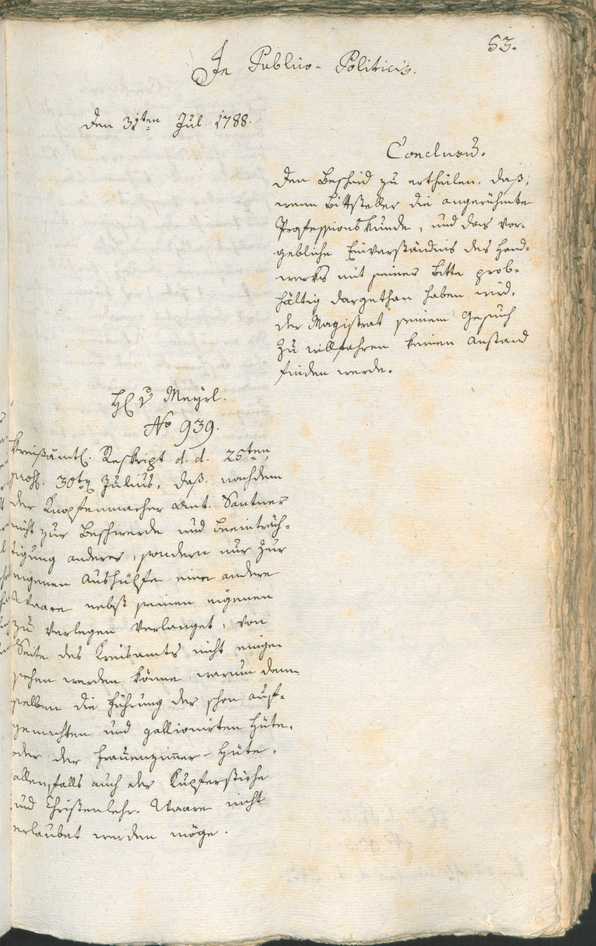 53.
In Publico-Politicis.
den 31ten Jul. 1788.
Conclusū.
den Bescheid zu ertheilen, daß,
wenn Bittsteller die angerühmte
Professionskunde, und das vor-
gebliche Einverständnis des Hand-
werks mit seiner Bitte prob-
hältig dargethan haben wird,
der Magistrat seinem Gesuch
zu willfahren keinen Anstand
finden werde.
H. v Mayrl.
No 939.
Kreisämtl. Reskript d. d. 26ten
praes. 30ten Julius, daß, nachdem
der Knopfenmacher Ant. Santner
nicht zur Beschwerde und Beeinträch-
tigung anderer, sondern nur zur
eigenen Aushülfe eine andere
Waare nebst seinen eigenen
zu verlegen verlanget, von
Seite des Kreisamts nicht einge-
sehen werden könne, warum dem-
selben die Führung der schon auf-
gemachten und gallionirten Hüte,
oder der Frauenzimmer-Hüte,
allenfalls auch der Kupferstiche
und Christenlehr-Waare nicht
erlaubet werden möge.